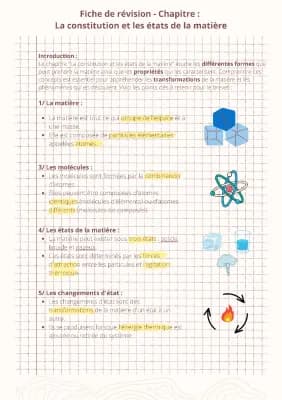 Fiche de révision - Chapitre :
La constitution et les états de la matière
Introduction :
Le chapitre "La constitution et les états de la matière" étudie les différentes formes que
peut prendre la matière ainsi que les propriétés qui les caractérisent. Comprendre ces
concepts est essentiel pour appréhender les transformations de la matière et les
phénomènes qui en découlent. Voici les points clés à retenir pour le brevet :
1/ La matière :
La matière est tout ce qui occupe de l'espace et a
une masse.
Elle est composée de particules élémentaires
appelées atomes.
3/ Les molécules :
Les molécules sont formées par la combinaison
d'atomes.
Elles peuvent être composées d'atomes
identiques (molécules d'éléments) ou d'atomes
différents (molécules de composés).
4/ Les états de la matière :
La matière peut exister sous trois états : solide,
liquide et gazeux.
Les états sont déterminés par les forces
d'attraction entre les particules et l'agitation
thermique.
5/ Les changements d'état :
Les changements d'état sont des
transformations de la matière d'un état à un
autre.
Ils se produisent lorsque l'énergie thermique est
ajoutée ou retirée du système.